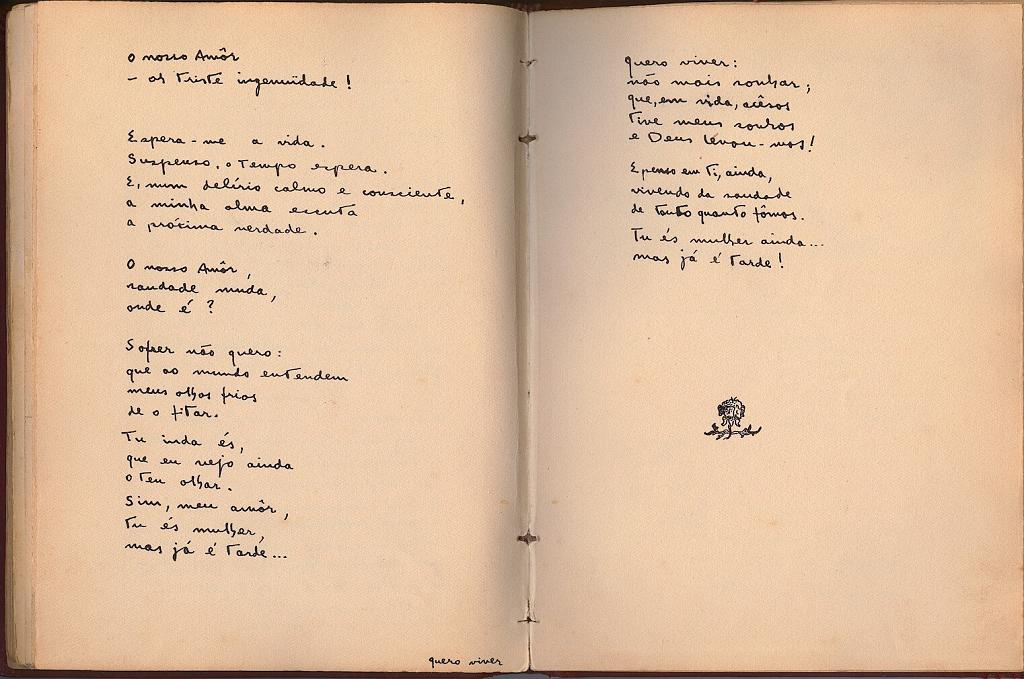 O nosso Amôr
- oh triste ingenuidade!
Espera-me a vida.
Suspenso, o Tempo espera.
E, num delírio calmo e consciente,
a minha alma escuta
a próxima verdade.
O nosso Amôr,
saudade muda,
onde é?
Sofrer não quero:
que ao mundo entendem
meus olhos frios
de o fitar.
Tu inda és,
que eu vejo ainda
o teu olhar.
Sim, meu amôr,
tu és mulher,
mas já é tarde...
quero viver
quero viver:
não mais sonhar;
que, em vida, acêsos
tive meus sonhos
e Deus levou-mos!
E penso em ti, ainda,
vivendo da saudade
de tanto quanto fômos.
Tu és mulher ainda...
mas já é tarde!